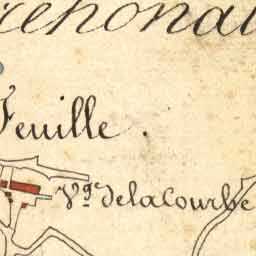 réhonal
Feuille.
Vge. de la Courbe